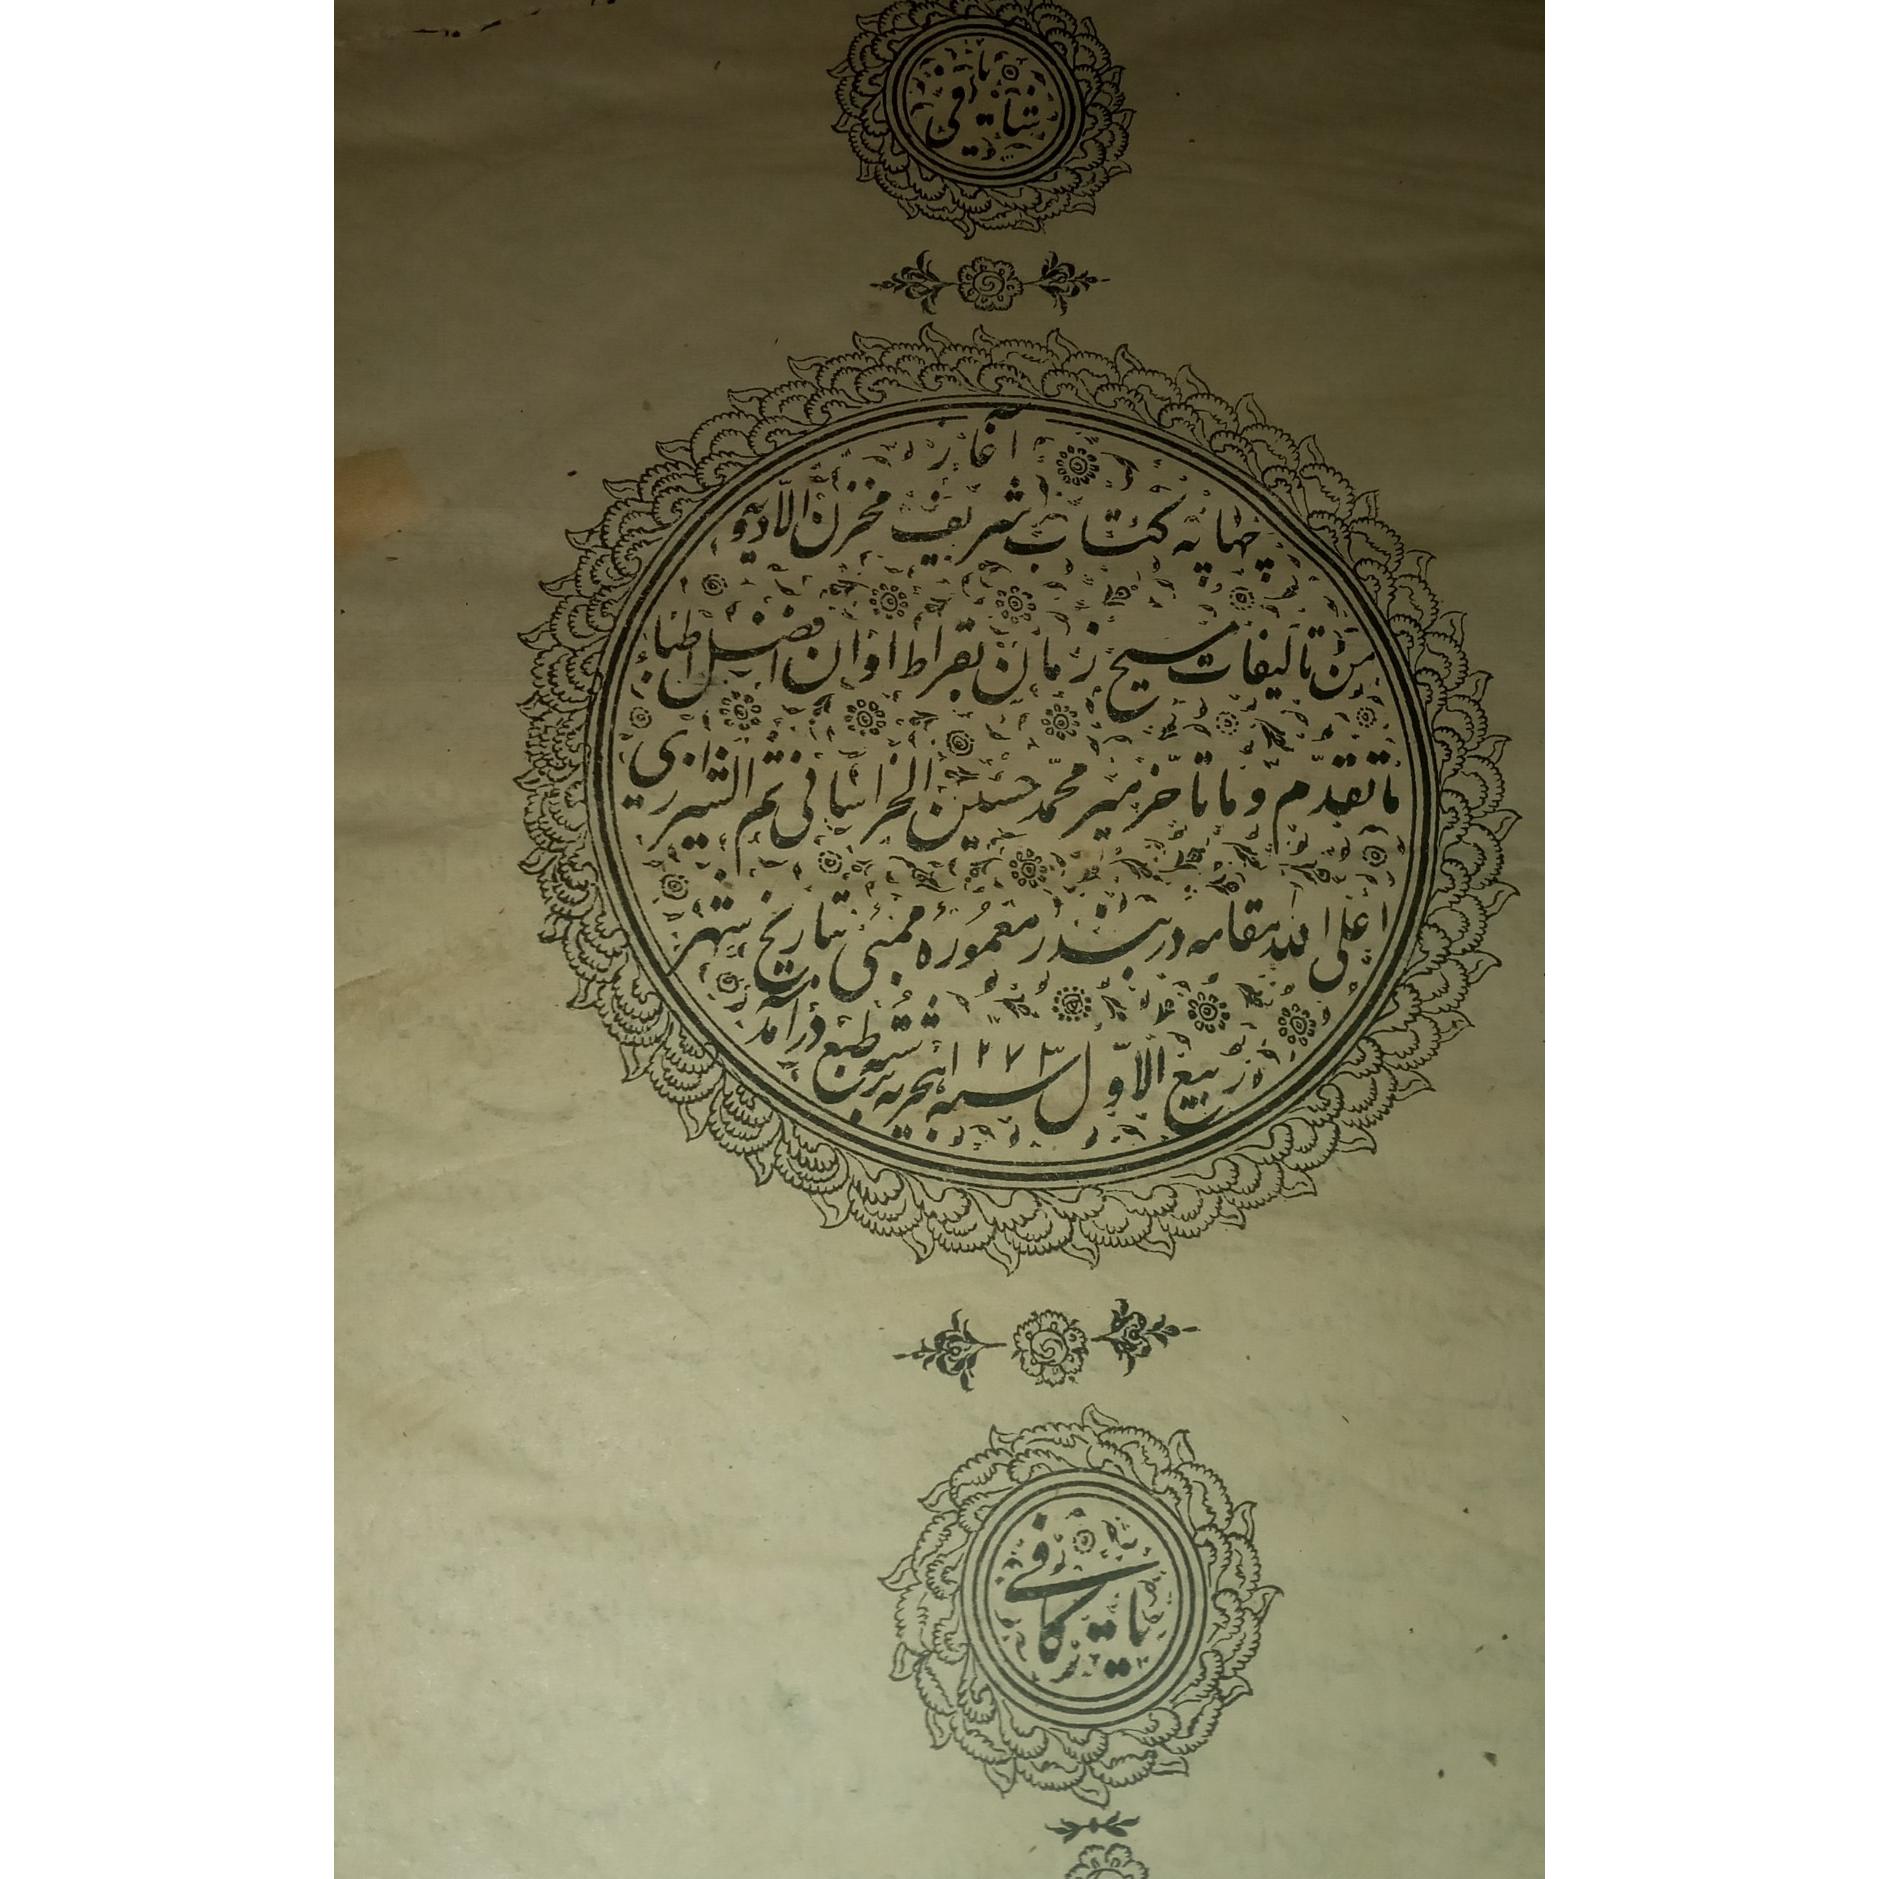 یا شافی
آغاز
چهاپه کتاب شریف مخزن الادویه
من تالیفات مسیح زمان بقراط اوان افضل اطباء
ما تقدّم و ما تاخّر میر محمّد حسین الخراسانی ثم الشیرازی
اعلی الله مقامه در بندر معموره ممبئی بتاریخ شهر
ربیع الاوّل سنه ۱۲۷۳ هجریه بزیر طبع درآمد
یا کافی